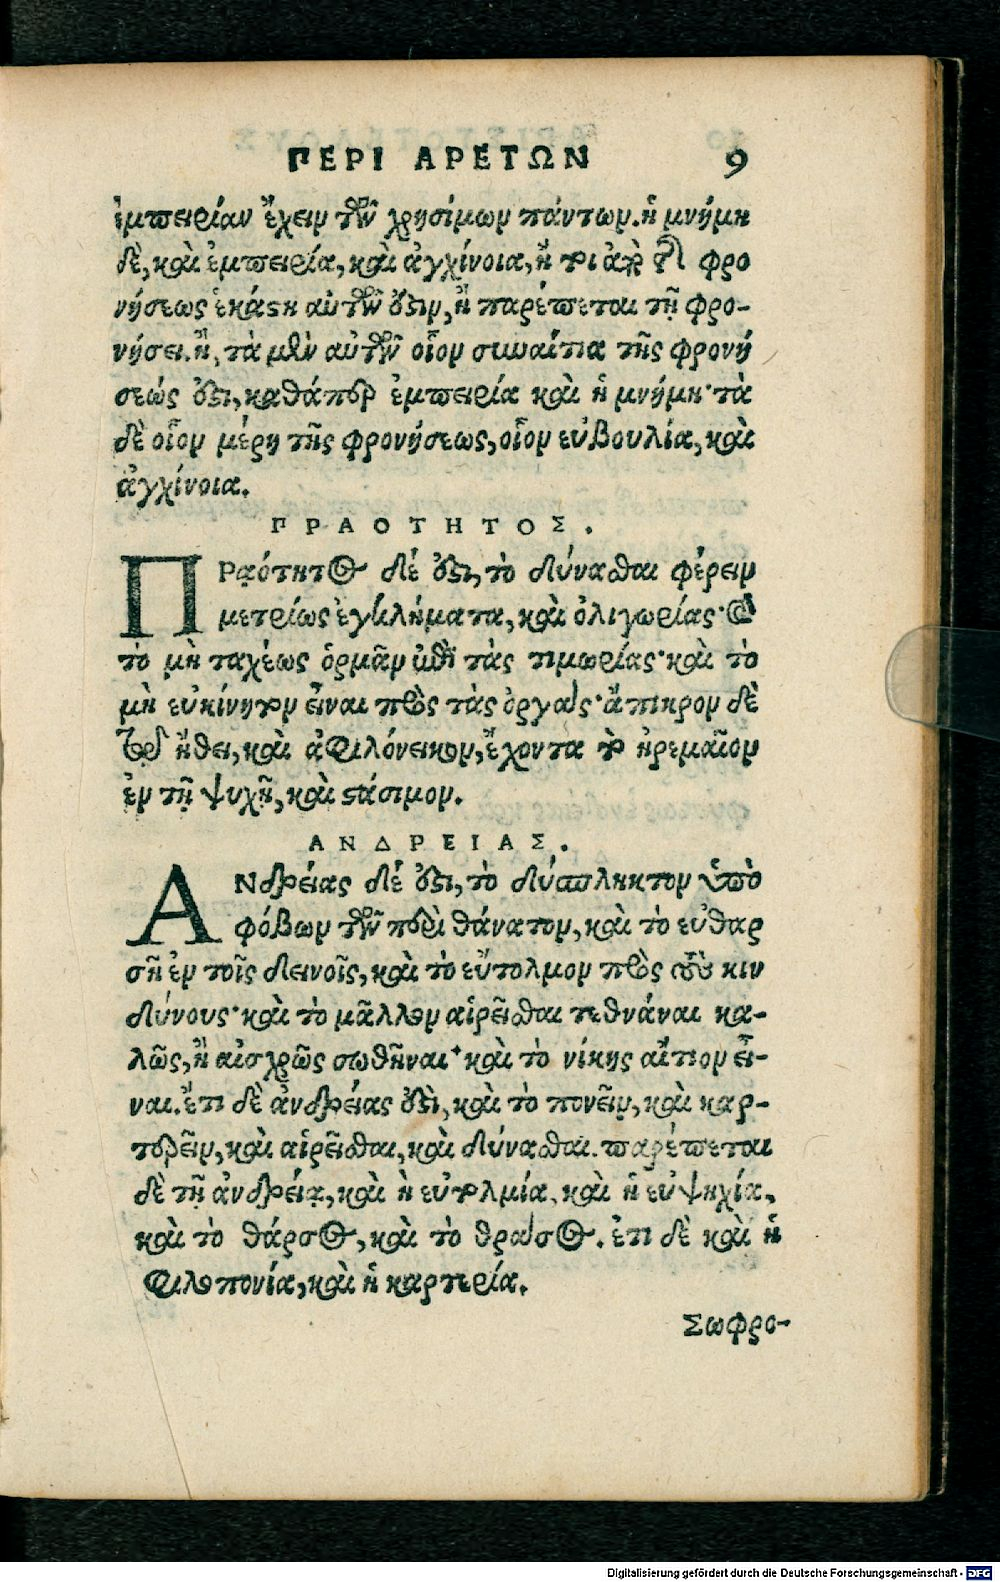 ΠΕΡΙ ΑΡΕΤΩΝ 9
ἐμπειρίαν ἔχειν τῶν χρησίμων πάντων. ἡ μνήμη
δὲ, καὶ ἐμπειρία, καὶ ἀγχίνοια, ἤτοι ἀπὸ τῆς φρο
νήσεως ἑκάστη αὐτῶν ὅστιν, ἢ παρέπεται τῇ φρο-
νήσει. ἢ, τὰ μὲν αὐτῶν οἷον συναίτια τῆς φρονή
σεώς ὅστι, καθάπερ ἐμπειρία καὶ ἡ μνήμη· τὰ
δὲ οἷον μέρη τῆς φρονήσεως, οἷον εὐβουλία, καὶ
ἀγχίνοια.
ΠΡΑΟΤΗΤΟΣ.
ΠΡαότητος δέ ὅστι, τὸ δύνασθαι φέρειν
μετρίως ἐγκλήματα, καὶ ὀλιγωρίας· καὶ
τὸ μὴ ταχέως ὁρμᾶν ἐπὶ τὰς τιμωρίας· καὶ τὸ
μὴ εὐκίνητον εἶναι πρὸς τὰς ὀργάς· ἄπικρον δὲ
τῷ ἤθει, καὶ ἀφιλόνεικον, ἔχοντα τὸ ἠρεμαῖον
ἐν τῇ ψυχῇ, καὶ στάσιμον.
ΑΝΔΡΕΙΑΣ.
ΑΝδρείας δέ ὅστι, τὸ δύσπληκτον ὑπὸ
φόβων τῶν περὶ θάνατον, καὶ τὸ εὐθαρ
σῆ ἐν τοῖς δεινοῖς, καὶ τὸ εὔτολμον πρὸς τοὺς κιν
δύνους· καὶ τὸ μᾶλλον αἱρεῖσθαι τεθνάναι κα-
λῶς, ἢ αἰσχρῶς σωθῆναι· καὶ τὸ νίκης αἴτιον εἶ-
ναι. ἔτι δὲ ἀνδρείας ὅστὶ, καὶ τὸ πονεῖν, καὶ καρ-
τερεῖν, καὶ αἱρεῖσθαι, καὶ δύνασθαι. παρέπεται
δὲ τῇ ἀνδρείᾳ, καὶ ἡ εὐτολμία, καὶ ἡ εὐψηχία,
καὶ τὸ θάρσος, καὶ τὸ θράσος. ἐτι δὲ καὶ ἡ
φιλοπονία, καὶ ἡ καρτερία.
Σωφρο-
Digitalisierung gefördert durch die Deutsche Forschungsgemeinschaft - DFG